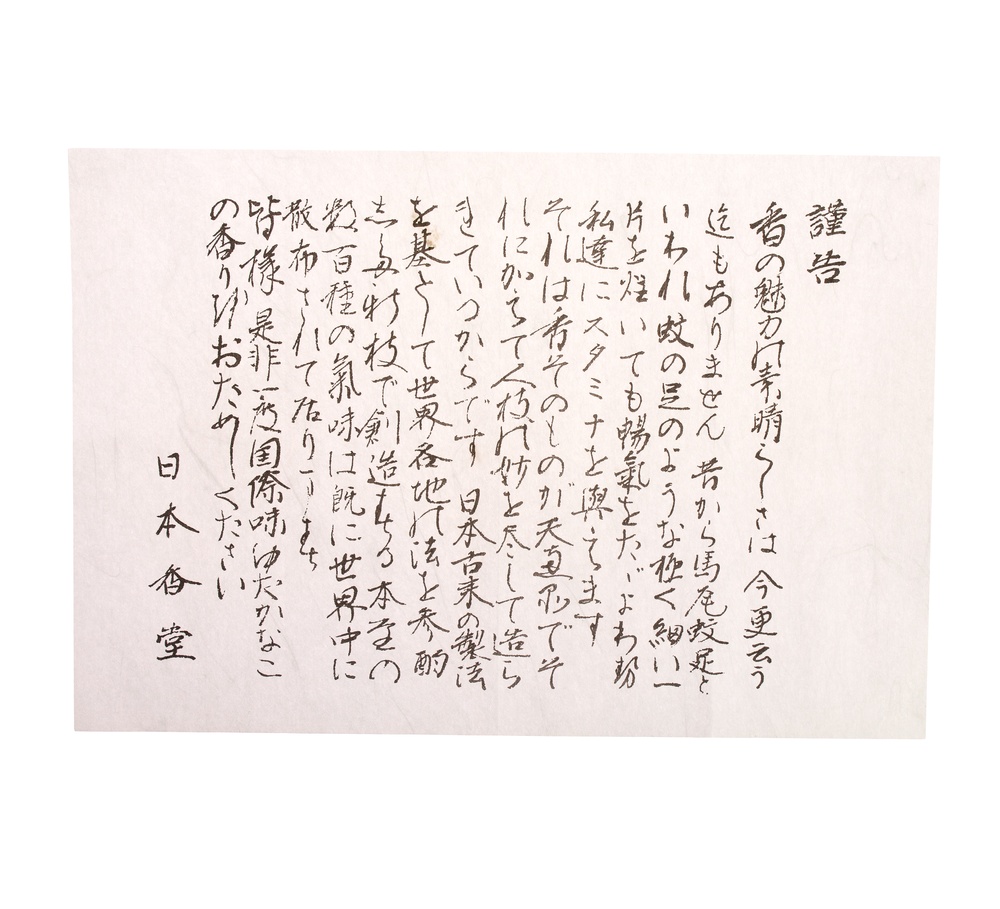 謹告
香の魅力の素晴らしさは 今更云う
迄もありません 昔から馬尾蚊足と
いわれ 蚊の足のような極く細い一
片を炷いても暢氣をたゞよわ
私達にスタミナを與えます
それは香そのものが天でそ
れにかえて人技の妙を尽して造ら
れているからです 日本古来の製法
を基として世界各地の法を参酌
した新技で創造する本堂の
数百種の氣味は既に世界中に
散布されて居ります
皆様 是非一度国際味ゆたかなこ
の香りをおためしください
日本香堂